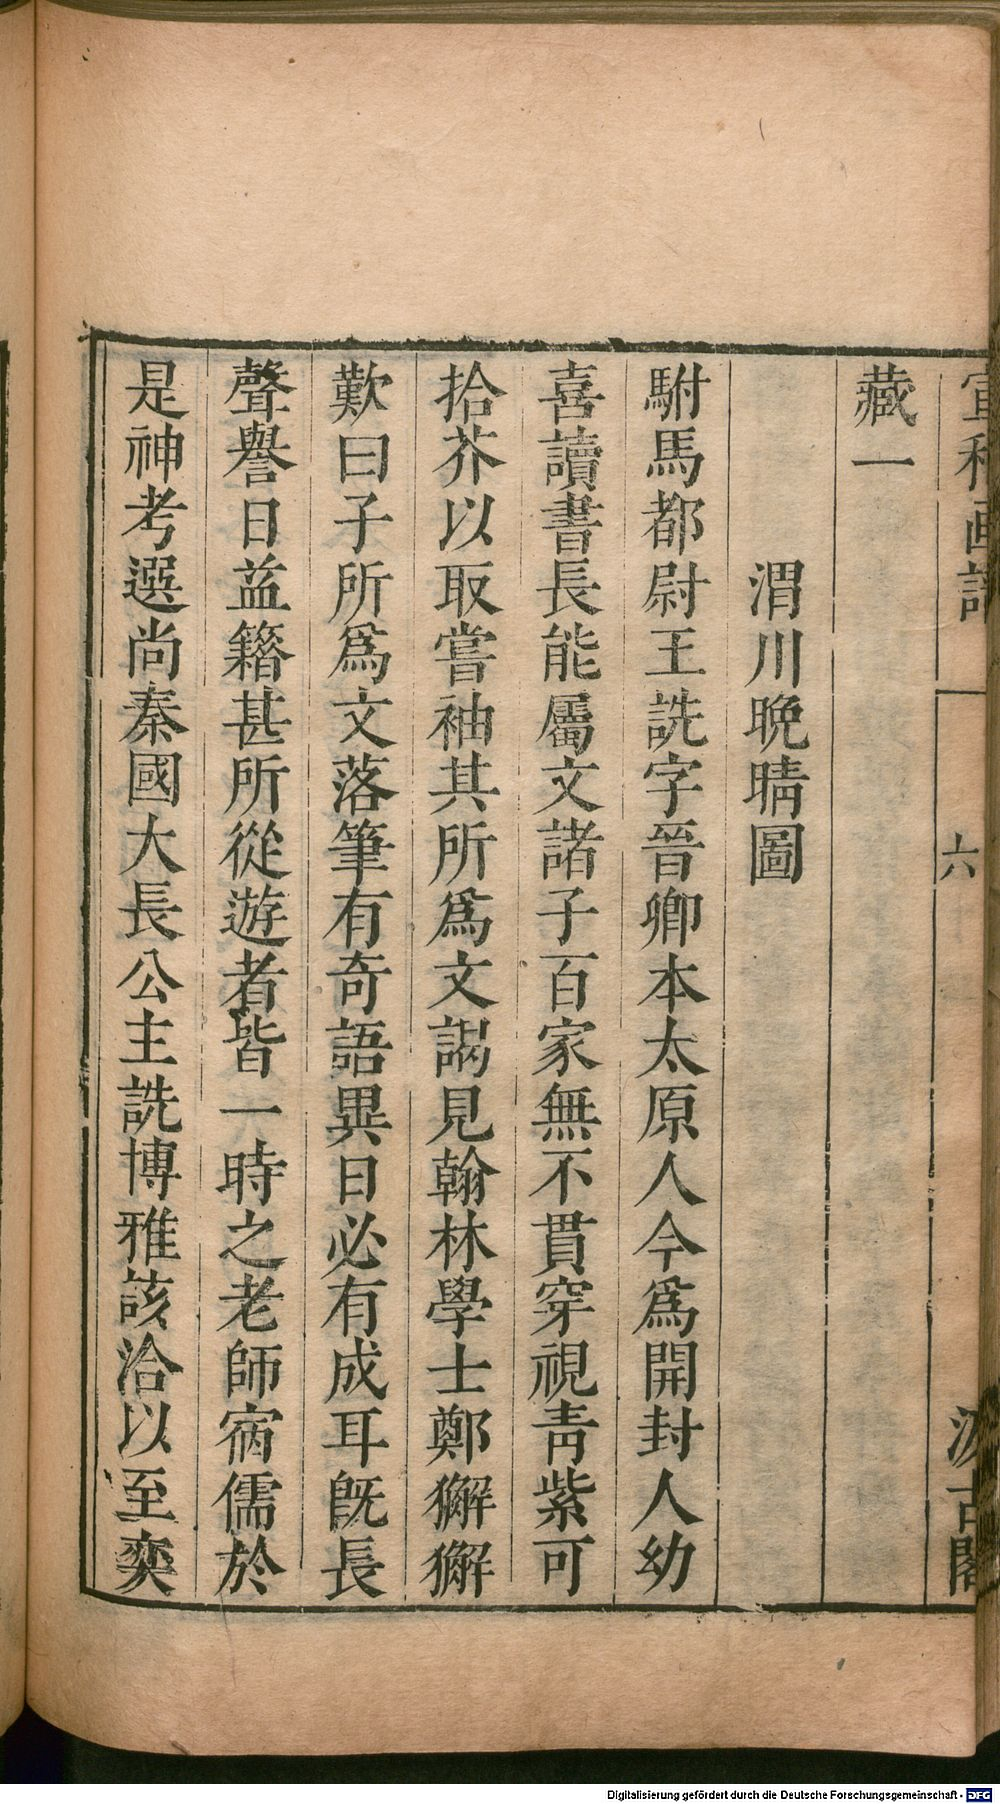 宣和画譜 六 汲古閣
藏一
渭川晚晴圖
駙馬都尉王詵字晉卿本太原人今爲開封人幼
喜讀書長能屬文諸子百家無不貫穿視青紫可
拾芥以取嘗袖其所爲文謁見翰林學士鄭獬獬
歎曰子所爲文落筆有奇語異日必有成耳旣長
聲譽日益籍甚所從遊者皆一時之老師宿儒於
是神考選尚秦國大長公主詵博雅該洽以至奕
Digitalisierung gefördert durch die Deutsche Forschungsgemeinschaft - DFG